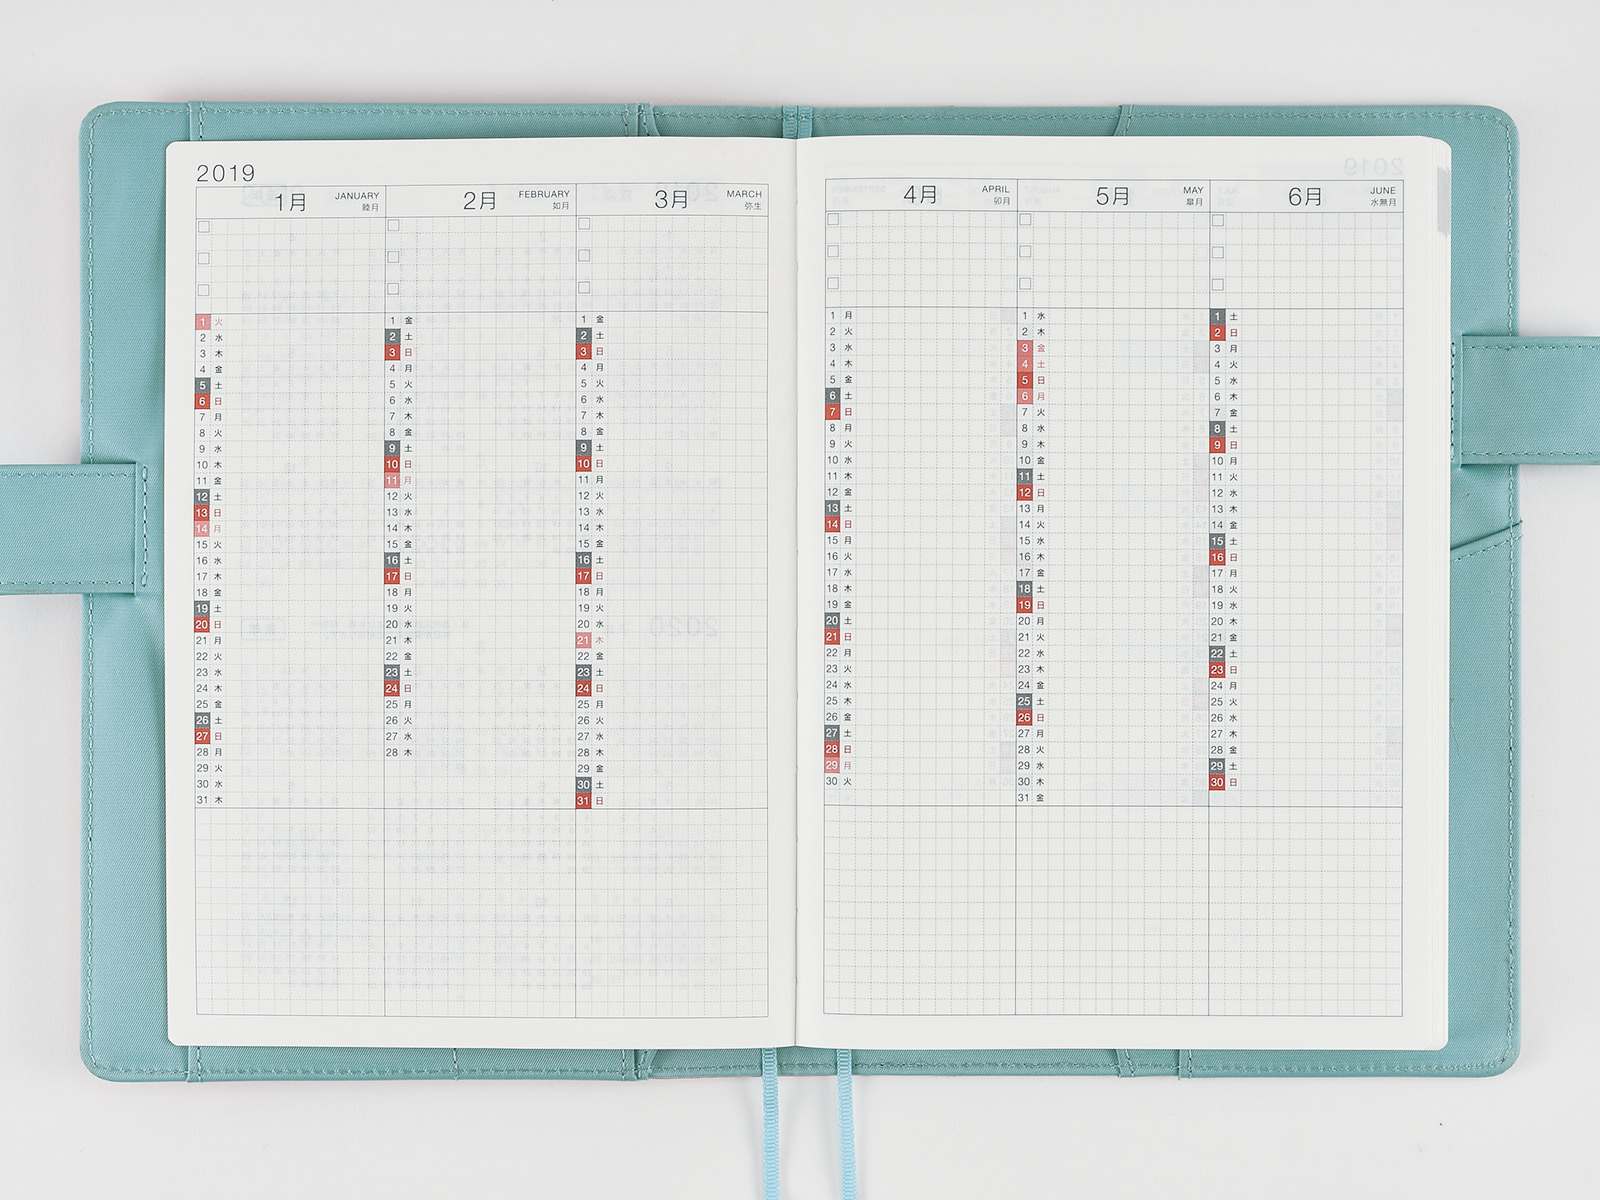 2019
1月 JANUARY 睦月
1 火
2 水
3 木
4 金
5 土
6 日
7 月
8 火
9 水
10 木
11 金
12 土
13 日
14 月
15 火
16 水
17 木
18 金
19 土
20 日
21 月
22 火
23 水
24 木
25 金
26 土
27 日
28 月
29 火
30 水
31 木
2月 FEBRUARY 如月
1 金
2 土
3 日
4 月
5 火
6 水
7 木
8 金
9 土
10 日
11 月
12 火
13 水
14 木
15 金
16 土
17 日
18 月
19 火
20 水
21 木
22 金
23 土
24 日
25 月
26 火
27 水
28 木
3月 MARCH 弥生
1 金
2 土
3 日
4 月
5 火
6 水
7 木
8 金
9 土
10 日
11 月
12 火
13 水
14 木
15 金
16 土
17 日
18 月
19 火
20 水
21 木
22 金
23 土
24 日
25 月
26 火
27 水
28 木
29 金
30 土
31 日
4月 APRIL 卯月
1 月
2 火
3 水
4 木
5 金
6 土
7 日
8 月
9 火
10 水
11 木
12 金
13 土
14 日
15 月
16 火
17 水
18 木
19 金
20 土
21 日
22 月
23 火
24 水
25 木
26 金
27 土
28 日
29 月
30 火
5月 MAY 皐月
1 水
2 木
3 金
4 土
5 日
6 月
7 火
8 水
9 木
10 金
11 土
12 日
13 月
14 火
15 水
16 木
17 金
18 土
19 日
20 月
21 火
22 水
23 木
24 金
25 土
26 日
27 月
28 火
29 水
30 木
31 金
6月 JUNE 水無月
1 土
2 日
3 月
4 火
5 水
6 木
7 金
8 土
9 日
10 月
11 火
12 水
13 木
14 金
15 土
16 日
17 月
18 火
19 水
20 木
21 金
22 土
23 日
24 月
25 火
26 水
27 木
28 金
29 土
30 日